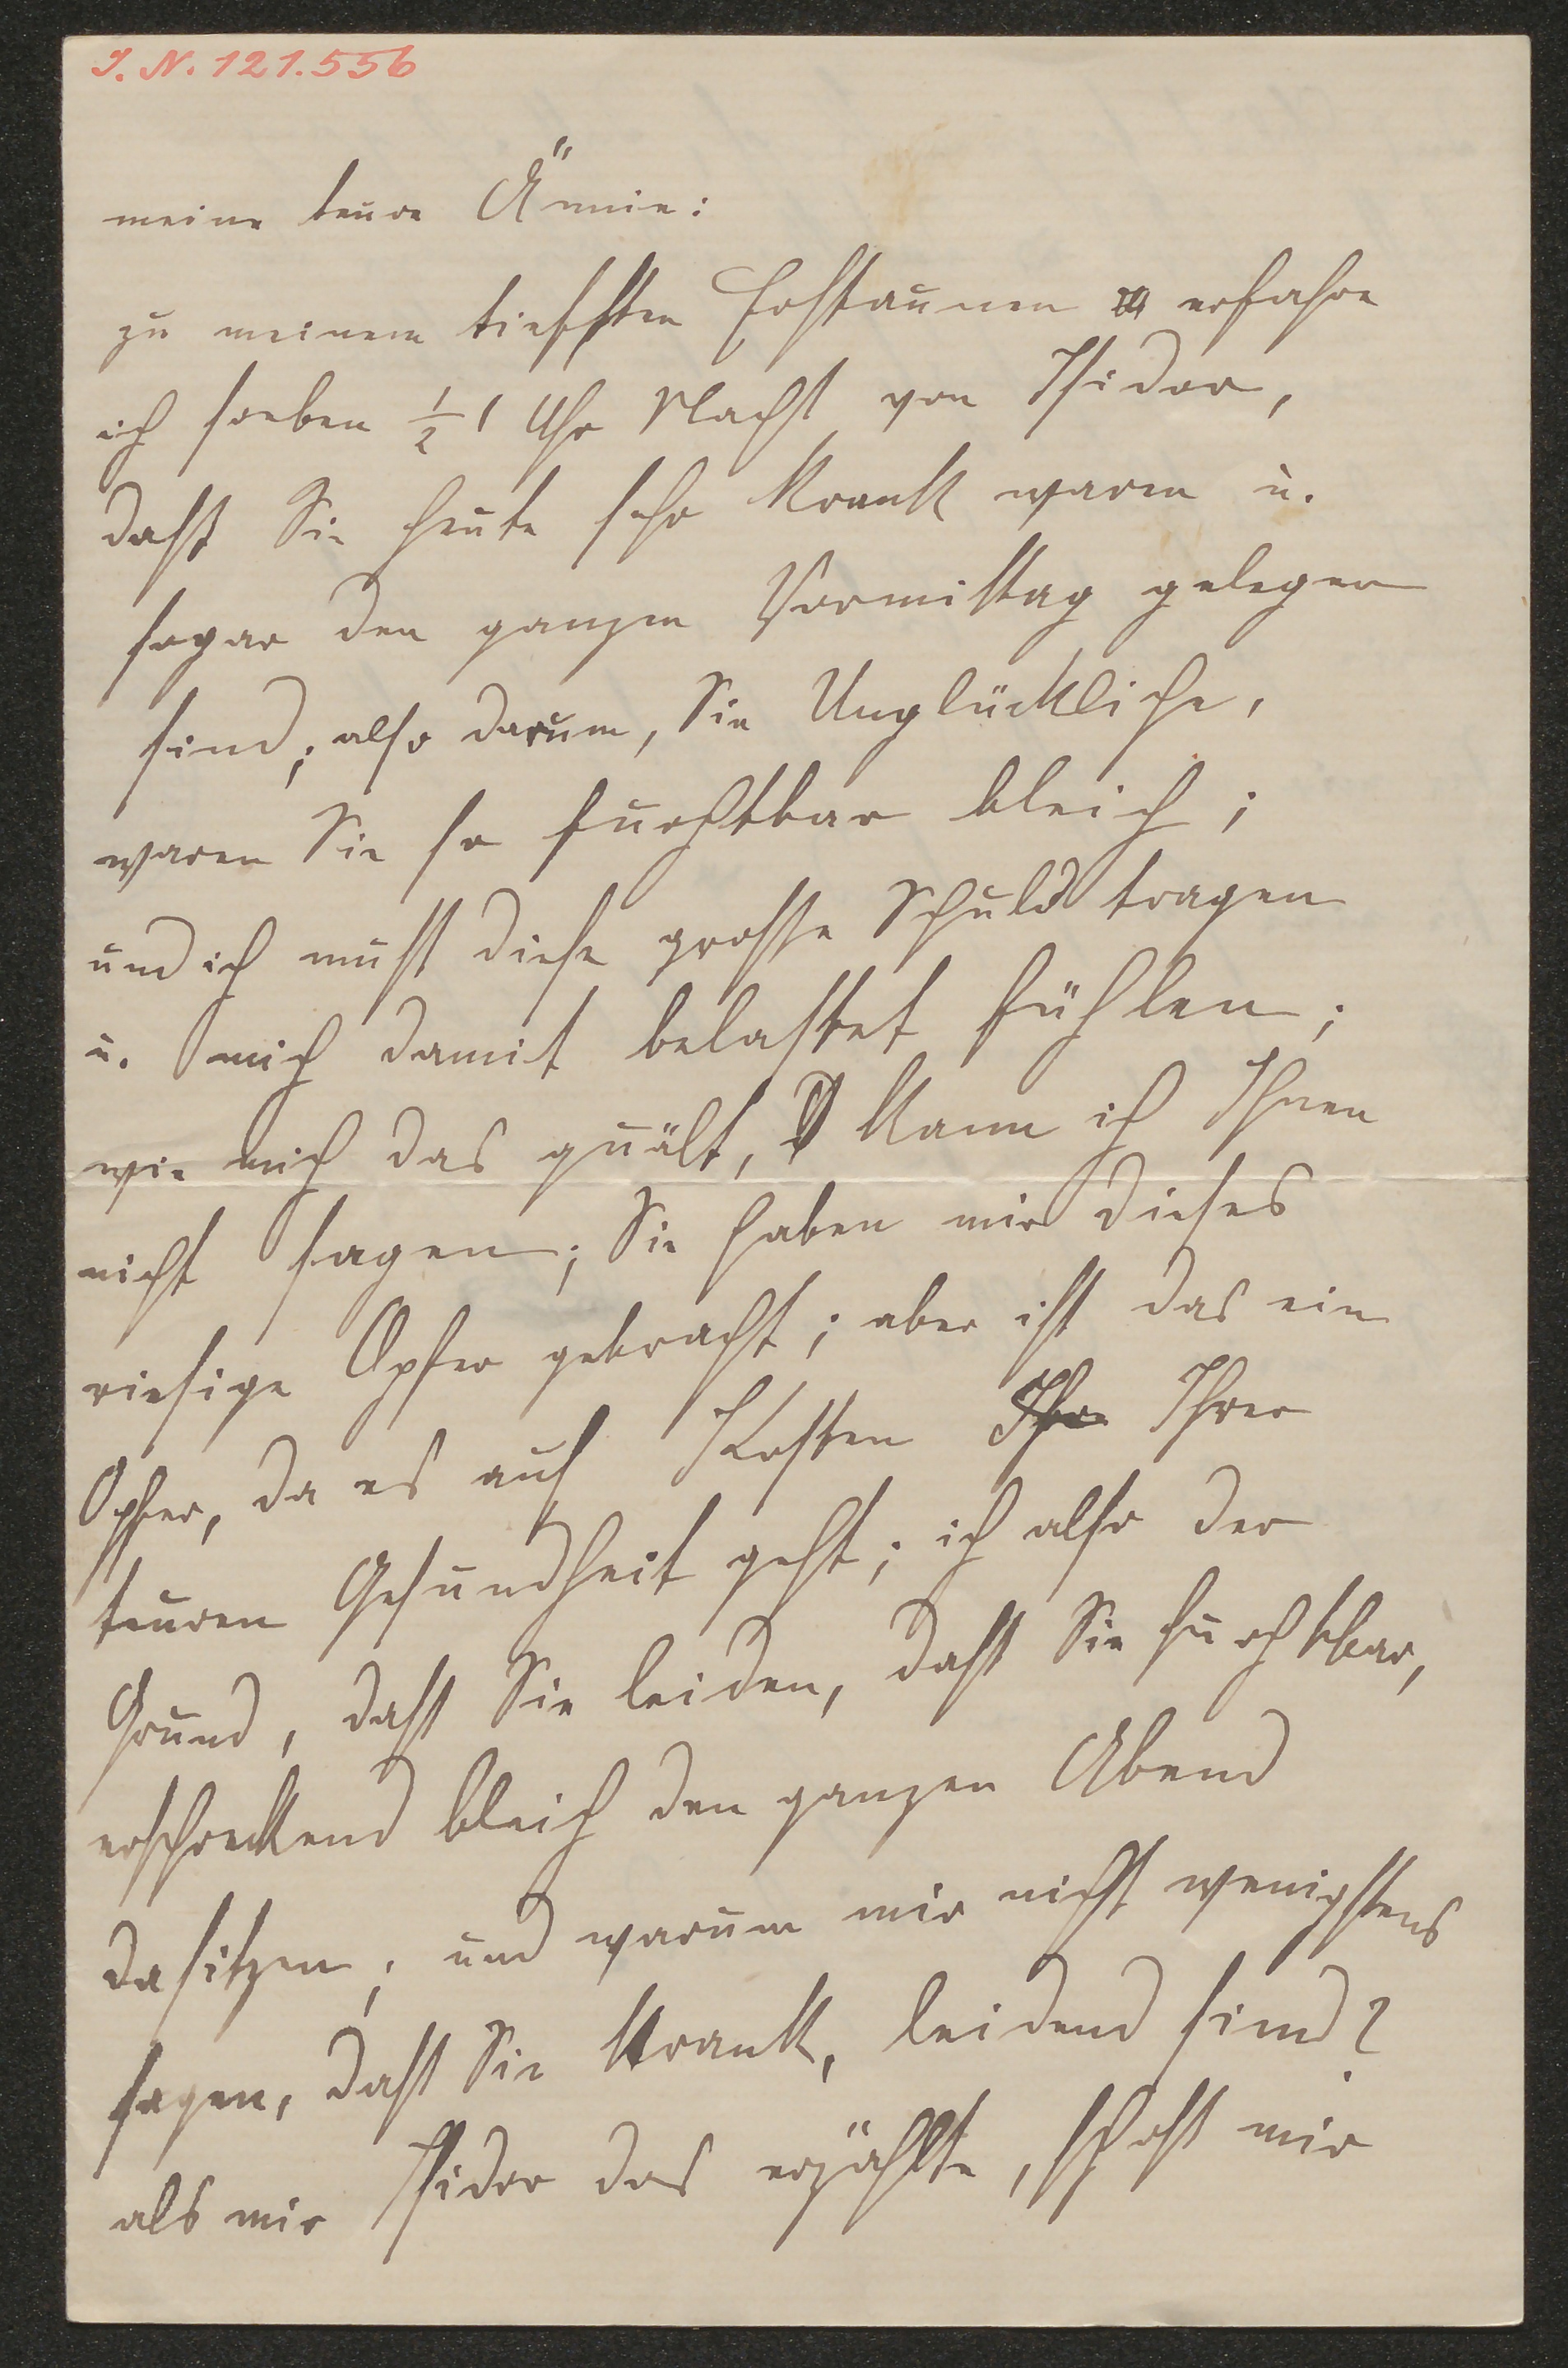 I. N. 121.556
meine teure Ännie:
zu meinem tiefsten Erstaunen erfahre
ich soeben ½ 1 Uhr Nacht von Isidor,
dass Sie heute sehr krank waren u.
sogar den ganzen Vormittag gelegen
sind; also darum, Sie Unglückliche,
waren Sie so furchtbar bleich;
und ich muss diese grosse Schuld tragen
u. mich damit belastet fühlen;
wie mich das quält, kann ich Ihnen
nicht sagen; Sie haben mir dieses
riesige Opfer gebracht; aber ist das ein
Opfer, da es auf Kosten Ihre Ihrer
teuren Gesundheit geht; ich also der
Grund, dass Sie leiden, dass Sie furchtbar,
erschreckend bleich den ganzen Abend
dasitzen; und warum mir nicht wenigstens
sagen, dass Sie krank, leidend sind?
als mir Isidor das erzählte, schoss mir